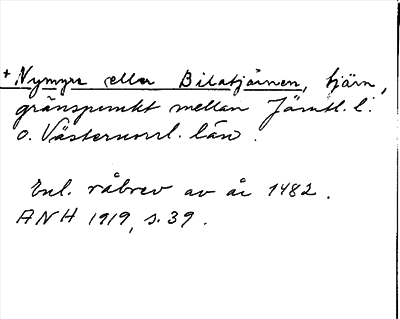 + Nymyra eller Bilatjärnen, tjärn,
gränspunkt mellan Jämtl. l.
o. Västernorrl. län.
Enl. råbrev av år 1482.
ANH 1919, s. 39.